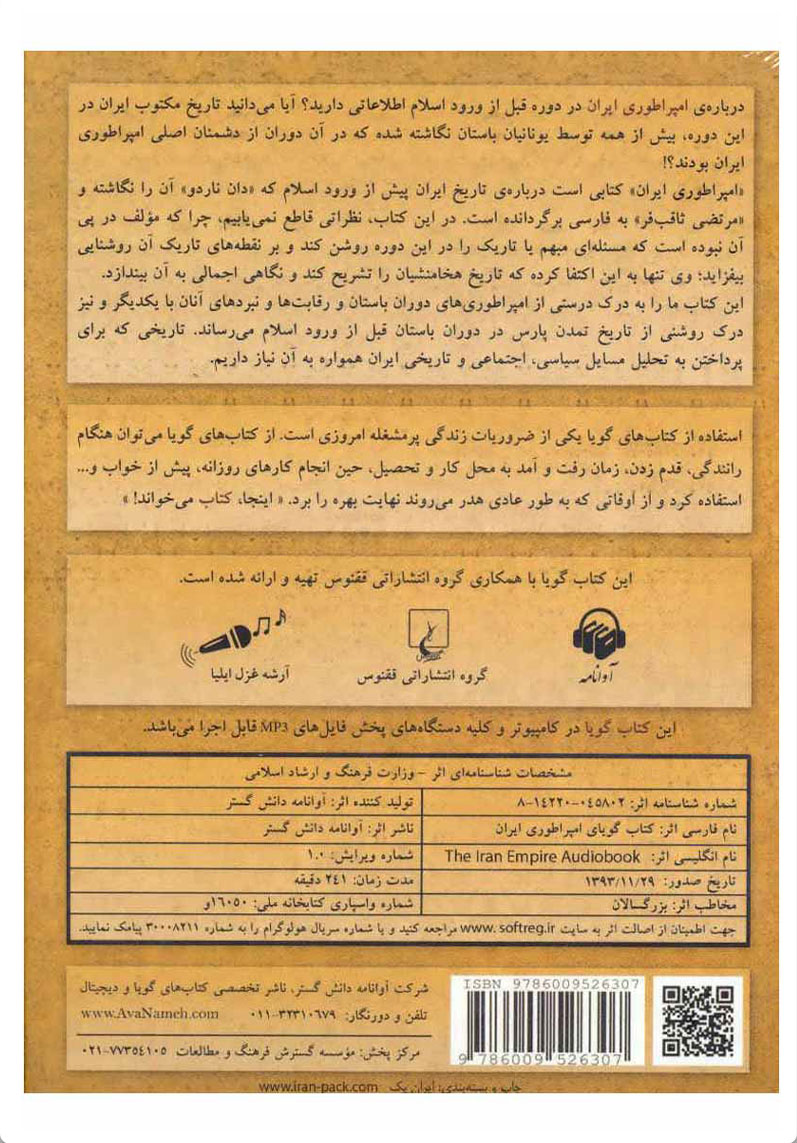 درباره‌ی امپراطوری ایران در دوره قبل از ورود اسلام اطلاعاتی دارید؟ آیا می‌دانید تاریخ مکتوب ایران در
این دوره، بیش از همه توسط یونانیان باستان نگاشته شده که در آن دوران از دشمنان اصلی امپراطوری
ایران بودند؟!
«امپراطوری ایران» کتابی است درباره‌ی تاریخ ایران پیش از ورود اسلام که «دان ناردو» آن را نگاشته و
«مرتضی ثاقب‌فر» به فارسی برگردانده است. در این کتاب، نظراتی قاطع نمی‌یابیم، چرا که مؤلف در پی
آن نبوده است که مسئله‌ای مبهم یا تاریک را در این دوره روشن کند و بر نقطه‌های تاریک آن روشنایی
بیفزاید؛ وی تنها به این اکتفا کرده که تاریخ هخامنشیان را تشریح کند و نگاهی اجمالی به آن بیندازد.
این کتاب ما را به درک درستی از امپراطوری‌های دوران باستان و رقابت‌ها و نبردهای آنان با یکدیگر و نیز
درک روشنی از تاریخ تمدن پارس در دوران باستان قبل از ورود اسلام می‌رساند. تاریخی که برای
پرداختن به تحلیل مسایل سیاسی، اجتماعی و تاریخی ایران همواره به آن نیاز داریم.
استفاده از کتاب‌های گویا یکی از ضروریات زندگی پرمشغله امروزی است. از کتاب‌های گویا می‌توان هنگام
رانندگی، قدم زدن، زمان رفت و آمد به محل کار و تحصیل، حین انجام کارهای روزانه، پیش از خواب و...
استفاده کرد و از اوقاتی که به طور عادی هدر می‌روند نهایت بهره را برد. « اینجا، کتاب می‌خواند! »
این کتاب گویا با همکاری گروه انتشاراتی ققنوس تهیه و ارائه شده است.
آوانامه گروه انتشاراتی ققنوس آرشه غزل ایلیا
این کتاب گویا در کامپیوتر و کلیه دستگاه‌های پخش فایل‌های MP3 قابل اجرا می‌باشد.
مشخصات شناسنامه‌ای اثر - وزارت فرهنگ و ارشاد اسلامی
شماره شناسنامه اثر: ۸-۱٤۲۲۰-۰٤۵۸۰۲ تولید کننده اثر: آوانامه دانش گستر
نام فارسی اثر: کتاب گویای امپراطوری ایران ناشر اثر: آوانامه دانش گستر
نام انگلیسی اثر: The Iran Empire Audiobook شماره ویرایش: ۱.۰
تاریخ صدور: ۱۳۹۳/۱۱/۲۹ مدت زمان: ۲٤۱ دقیقه
مخاطب اثر: بزرگسالان شماره واسپاری کتابخانه ملی: ۱۶۰۵۰و
جهت اطمینان از اصالت اثر به سایت www. softreg.ir مراجعه کنید و یا شماره سریال هولوگرام را به شماره ۳۰۰۰۸۲۱۱ پیامک نمایید.
شرکت آوانامه دانش گستر، ناشر تخصصی کتاب‌های گویا و دیجیتال
تلفن و دورنگار: ۰۱۱-۳۲۳۱۰۶۷۹ www.AvaNameh.com
مرکز پخش: مؤسسه گسترش فرهنگ و مطالعات ۰۲۱-۷۷۳۵٤۱۰۵
ISBN 9786009526307
9 786009 526307
چاپ و بسته‌بندی: ایران پک www.iran-pack.com